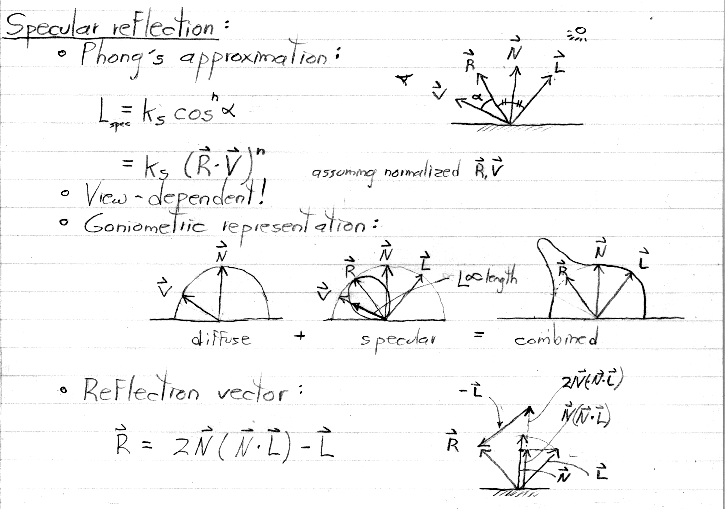 Specular reflection:
• Phong's approximation:
L_spec = k_s cos^n α
= k_s (R⃗·V⃗)^n assuming normalized R⃗,V⃗
V⃗ R⃗ N⃗ L⃗
α
• View-dependent!
• Goniometric representation:
V⃗ N⃗
V⃗ R⃗ N⃗ L⃗
L∝length
R⃗ N⃗ L⃗
diffuse + specular = combined
• Reflection vector:
R⃗ = 2N⃗(N⃗·L⃗)-L⃗
-L⃗ 2N⃗(N⃗·L⃗)
N⃗(N⃗·L⃗)
R⃗
N⃗ L⃗